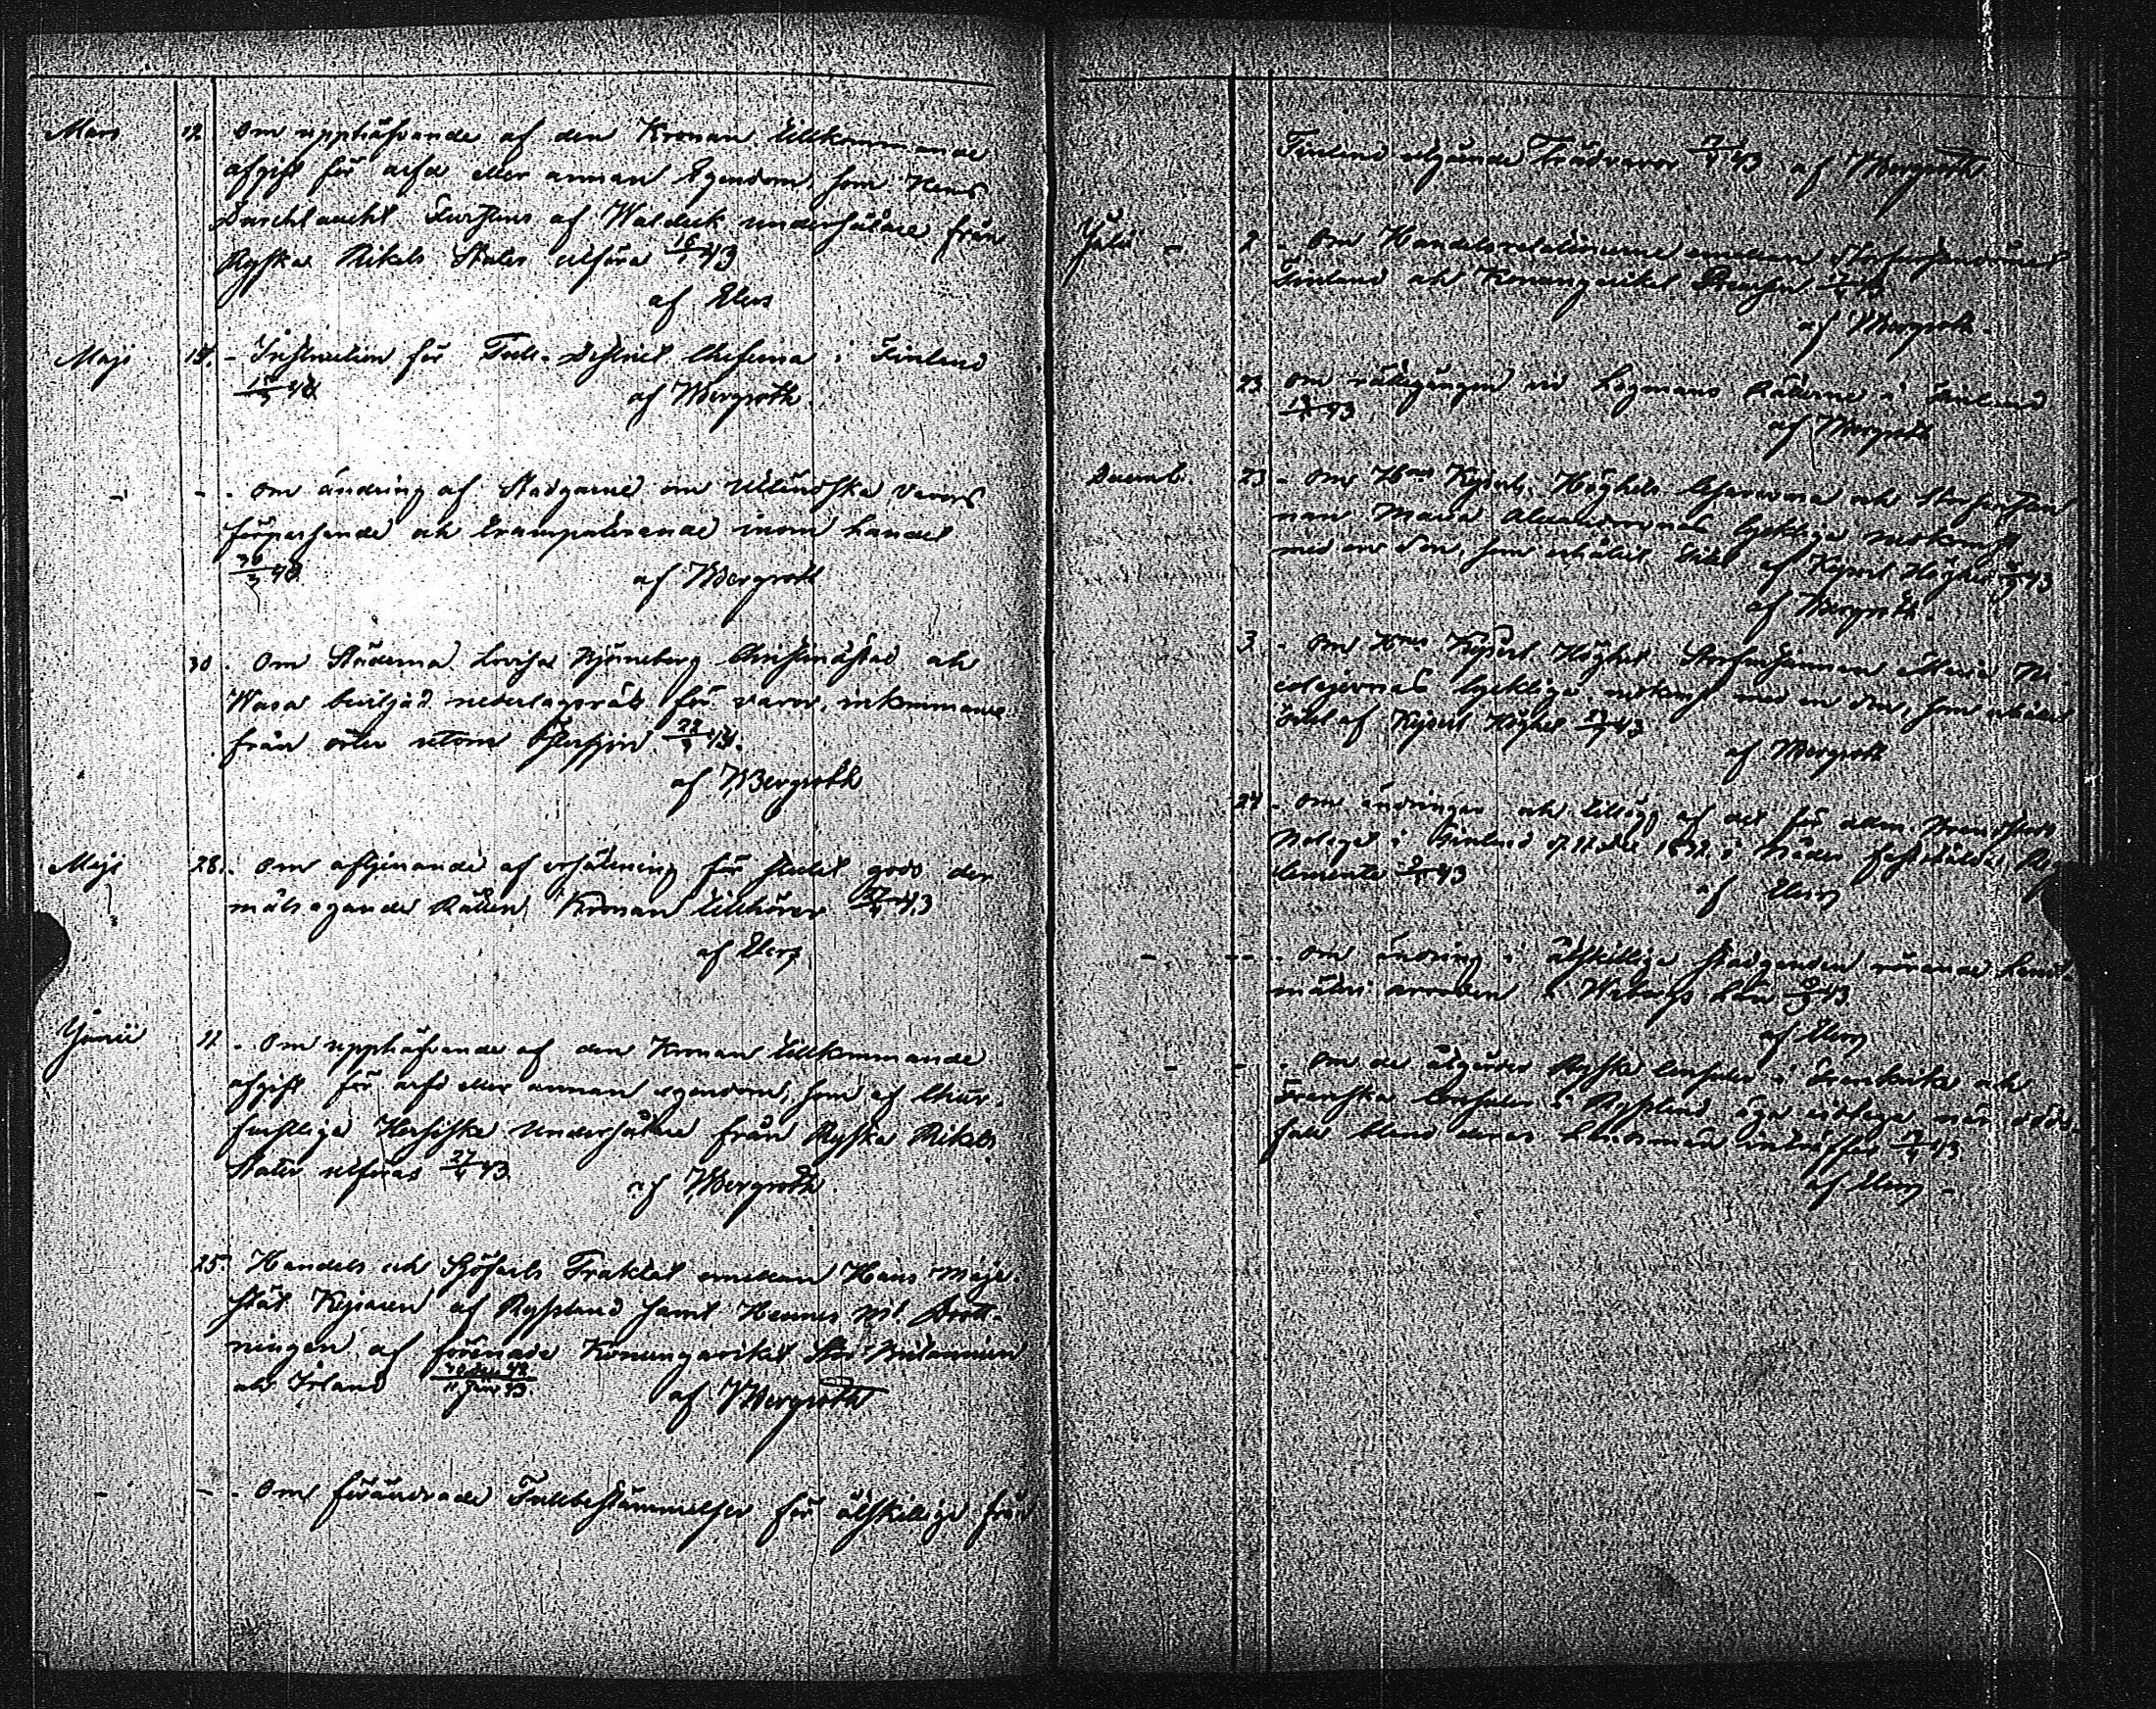 Mars 12. Om upphäfvande af den Kronan tillkommande
afgift för arfd eller annan Egendom, som Hans
Durchlaucht Furstens af Waldeck undersåtare från
Ryska Rikets Stater utföra 16/1 43
af Elers
Maji 15. - Instruction för Tull-District Cheferna i Finland
af WBergroth.
- - . Om ändring af Stadgarne om Utländska varors
förpassande och transporterande inom Landet
30/3 43 af WBergroth
30 . Om Städerna Lovisa Björneborg Christinæstad och
Wasa beviljad nederlagsrätt för varor, inkommande
från orter utom Östersjön 29/3 43.
af WBergroth
Maji 28. . Om afginande af ersättning för stulet gods der
målsegande Rätten Kronan tillhörer 27/4 43
af Elers
Junii 11 . Om upphäfvande af den Kronan tillkommande
afgift för arfd eller annan egendom, som af Chur-
furstliga Hessiska Undersåtare från Ryska Rikets
Stater utföras 27/4 43.
af WBergroth
25. Handels och Sjöfarts Traktat emellan Hans Maje-
stät Kejsaren af Ryssland samt Hennes Mt. Drott-
ningen af förenade Konungariket Stor-Britannien
och Irland 30 Dec 42 / 11 Jan 43. af WBergroth
- - . Om förändrade Tullbestämmelser för åtskillige från
Finland utgående Trädvaror 43 af WBergroth
Julii - 2 - Om Handelsrelationerne emellan Storfurstendömet
Finland och Konungariket Preussen 43
af WBergroth.
23 Om rättegången vid Lagmans Rätterne i Finland
43 af WBergroth
Decemb. 23 - Om Hans Kejserl. Höghets Cesarevnas och Storfurstin
nan Maria Alexandrovnas lyckliga nedkomst
med en Son, som erhållit Titel af Kejserl Höghet 43
af WBergroth.
3 . Om Kejserl Höghet Storfurstinnan Maria Ni-
colajevnas lyckliga nedkomst med en Son, som erhållit
titel af Kejserl Höghet 43
af WBergroth
24 - Om ändringar och tillägg af det för allm. Brandstods
Bolaget i Finland d. Dec 1832 i Nåder fastställde Re
glemente 43
af Elers
- - - . Om ändring i åtskillige stadganden rörande Landt
mäteri arvoden i Wiborgs Län 43
af Elers
- - . Om de åtgärder Ryska Consuler i Frankrike och
Franska Consuler i Ryssland äga vidtaga när döds-
fall bland deras Landsmän inträffar 43.
af Elers -